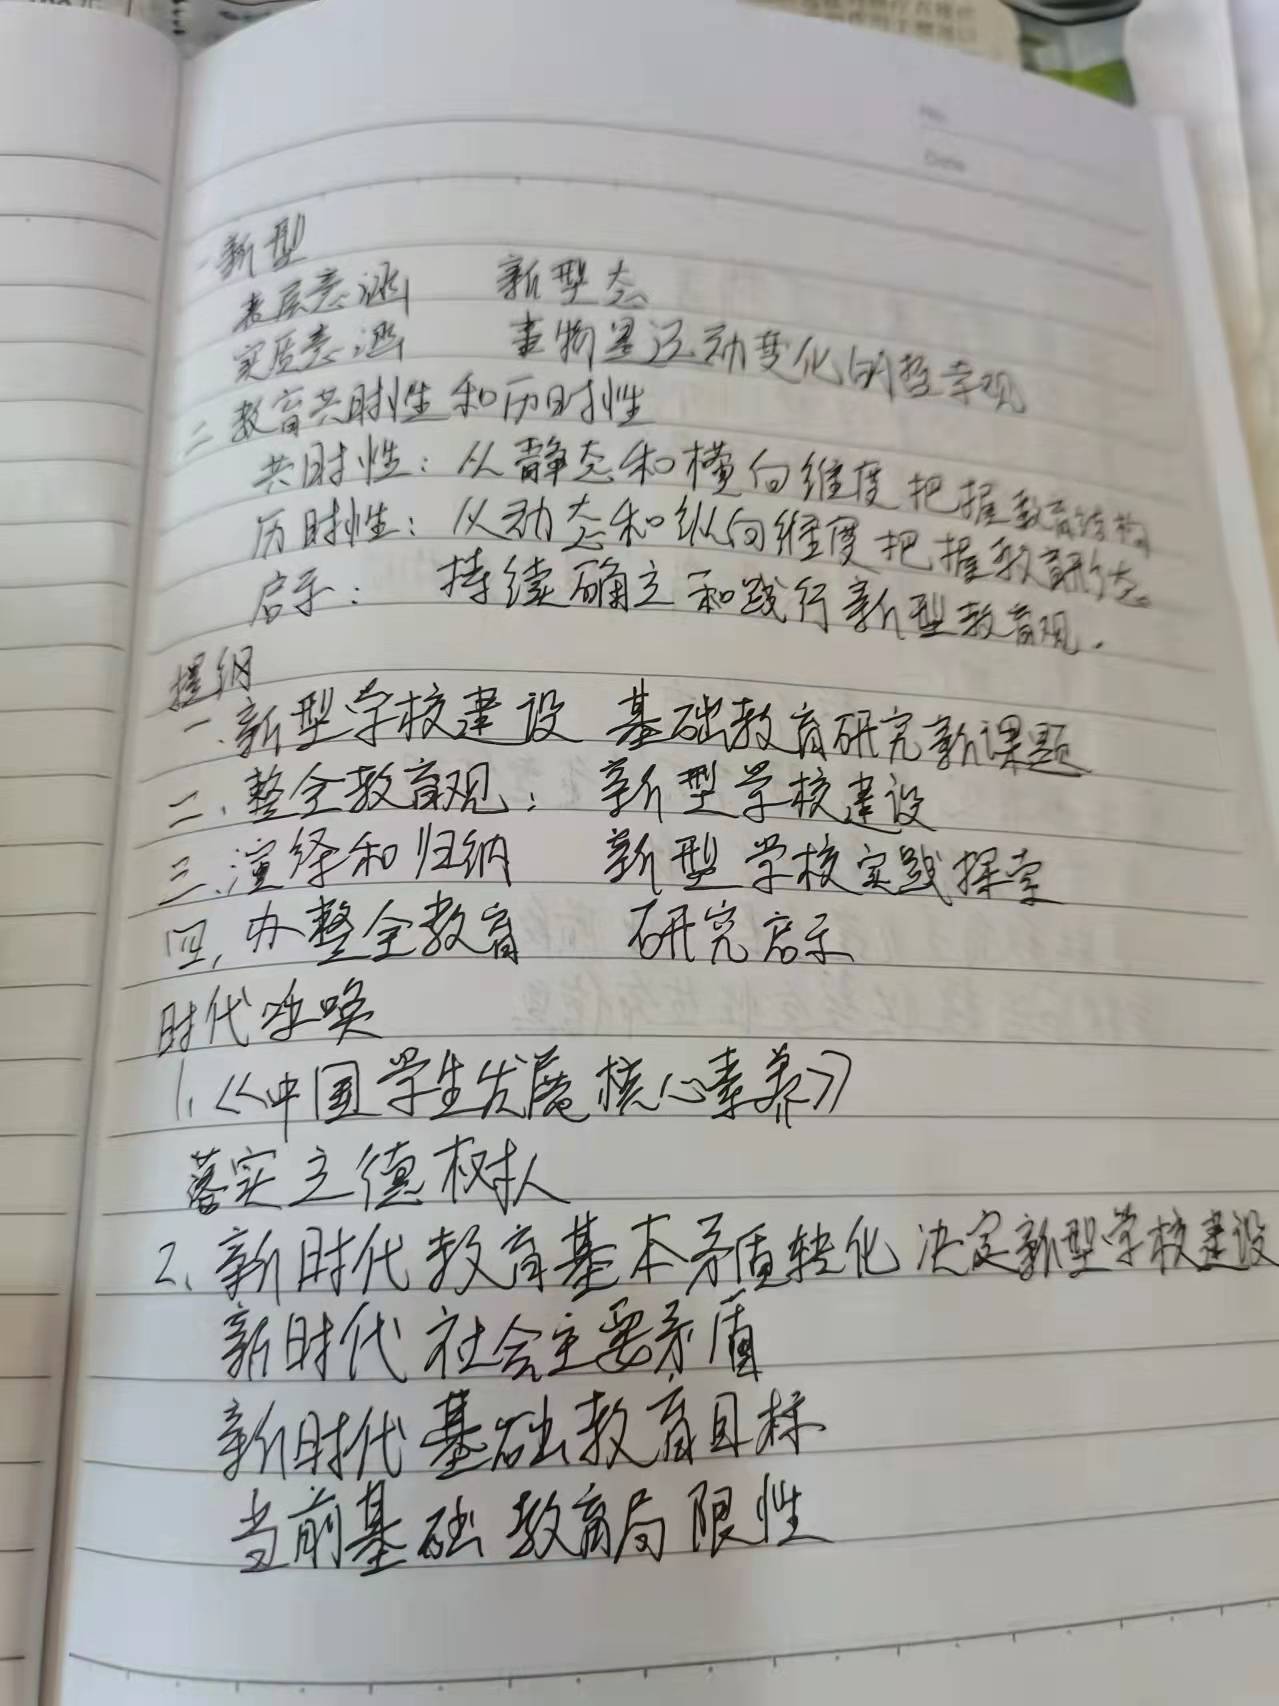 No.
Date
一新型
表层意涵 新型态
实质意涵 事物是运动变化的哲学观
二教育共时性和历时性
共时性：从静态和横向维度把握教育结构
历时性：从动态和纵向维度把握教育形态
启示： 持续确立和践行新型教育观.
提纲
一、新型学校建设 基础教育研究新课题
二、整全教育观： 新型学校建设
三、演绎和归纳 新型学校实践探索
四、办整全教育 研究启示
时代呼唤
1、《中国学生发展核心素养》
落实立德树人
2、新时代教育基本矛盾转化 决定新型学校建设
新时代社会主要矛盾
新时代基础教育目标
当前基础教育局限性